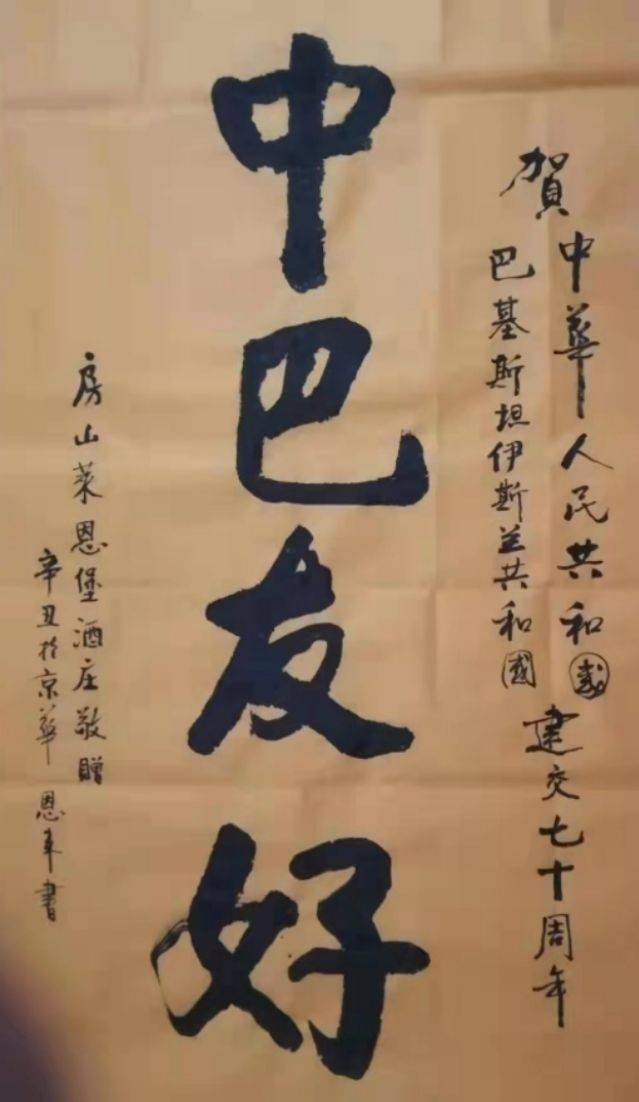 賀
中華人民共和國
巴基斯坦伊斯兰共和國
建交七十周年
中巴友好
房山莱恩堡酒庄敬贈
辛丑於京華 恩军書